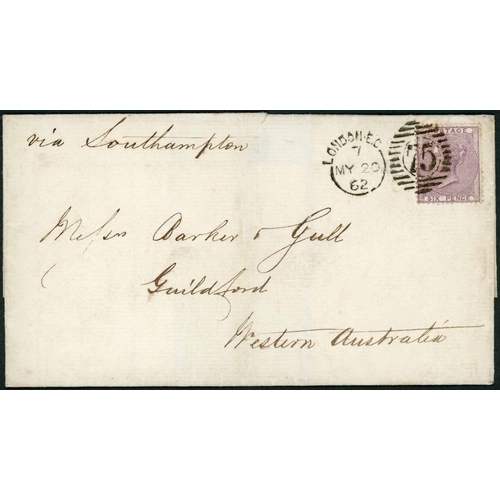 via Southampton
LONDON.E.C
7
MY 20
62
75
POSTAGE
SIX PENCE
Messrs Barker & Gull
Guildford
Western Australia